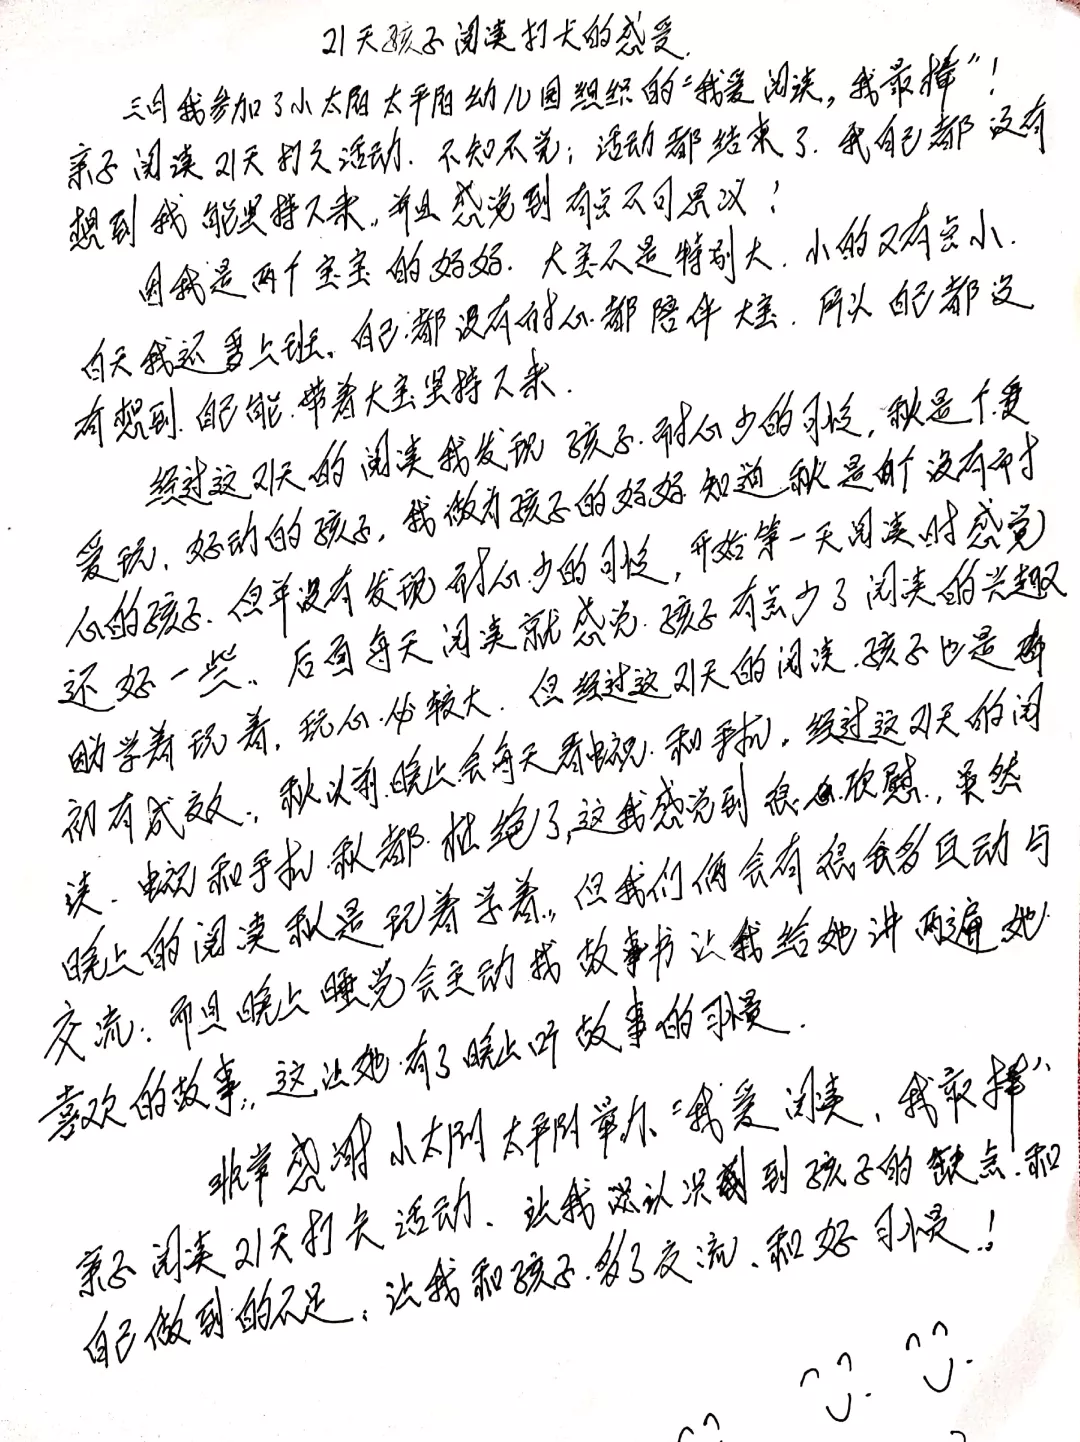 21天孩子阅读打卡的感受.
三月我参加了小太阳太平阳幼儿园组织的“我爱阅读,我最棒”!
亲子阅读21天打卡活动.不知不觉;活动都结束了.我自己都没有
想到我能坚持下来,并且感觉到有点不可思议!
因我是两个宝宝的妈妈.大宝不是特别大.小的又有点小.
白天我还要上班、自己都没有耐心都陪伴大宝.所以自己都没
有想到.自己能.带着大宝坚持下来.
经过这21天的阅读我发现孩子.耐心少的可怜,她是个爱
爱玩,好动的孩子,我做为孩子的妈妈知道她是个没有耐
心的孩子.但并没有发现耐心少的可怜,开始第一天阅读时感觉
还好一些、后面每天阅读就感觉.孩子有点少了阅读的兴趣
学着玩着,玩心比较大.但经过这21天的阅读.孩子也是
初有成效.,她以前.晚上会每天看电视.和手机,经过这21天的阅
读、电视和手机她都.杜绝了,这我感觉到很欣慰,虽然
晚上的阅读她是玩着学着.,但我们俩会有很多互动与
交流;而且晚上睡觉会主动找故事书让我给她讲两遍她
喜欢的故事.,这让她.有了晚上听故事的习惯.
非常感谢小太阳太平阳举办“我爱阅读,我最棒”
亲子阅读21天打卡活动、让我认识到孩子的缺点.和
自己做到的不足,让我和孩子.多了交流、和好习惯.!